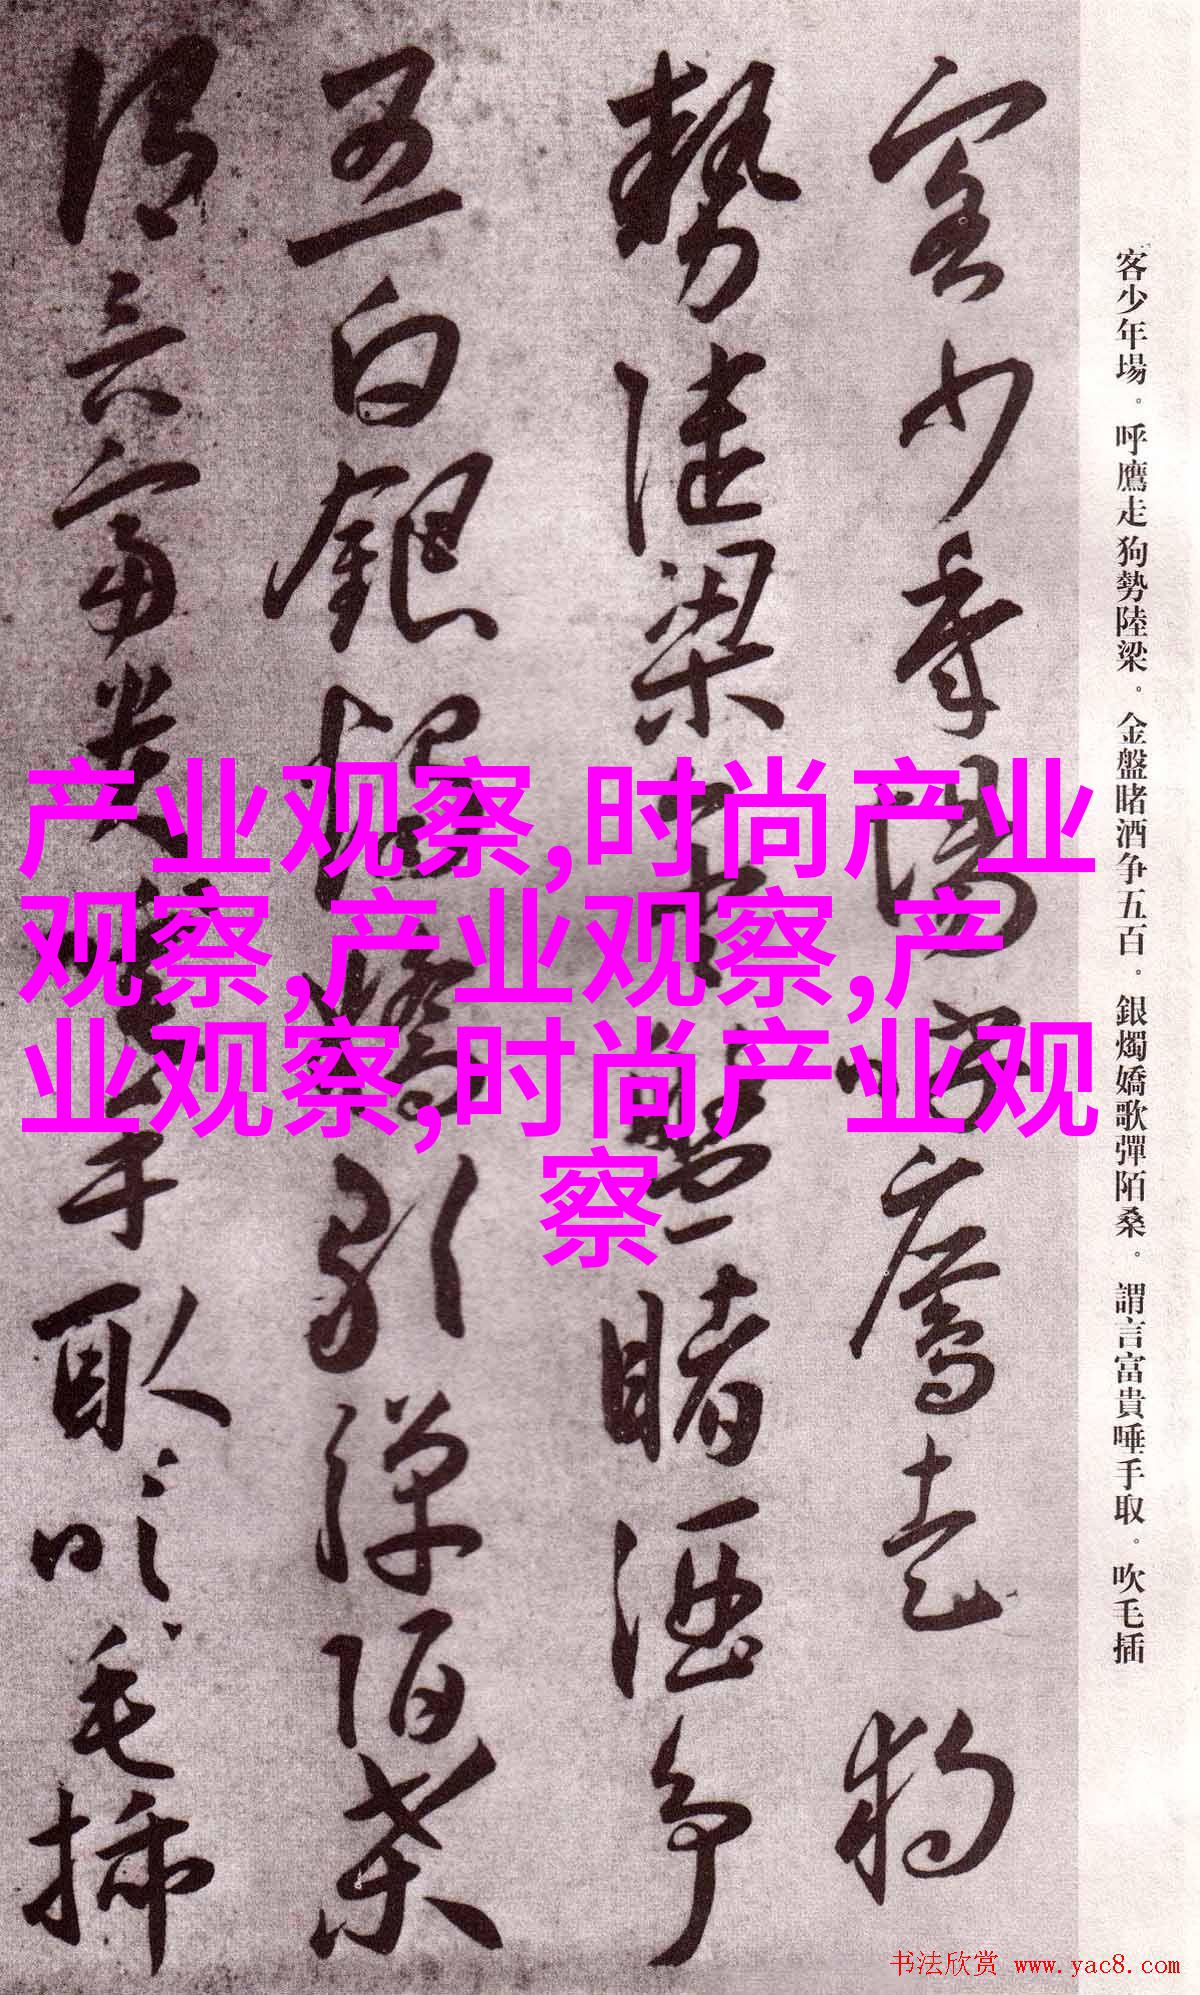 客少年場。呼鷹走狗勢陸梁。金盤睹酒争五百。銀燭嬌歌彈陌桑。謂言富貴唾手取。吹毛插
客少年場呼鷹走狗
勢陸梁金盤睹酒争
五白銀燭嬌歌彈陌桑
謂言富貴唾手取吹毛插
产业观察,时尚产业
观察,产业观察,产
业观察,时尚产业观
察
书法欣赏 www.yac8.com